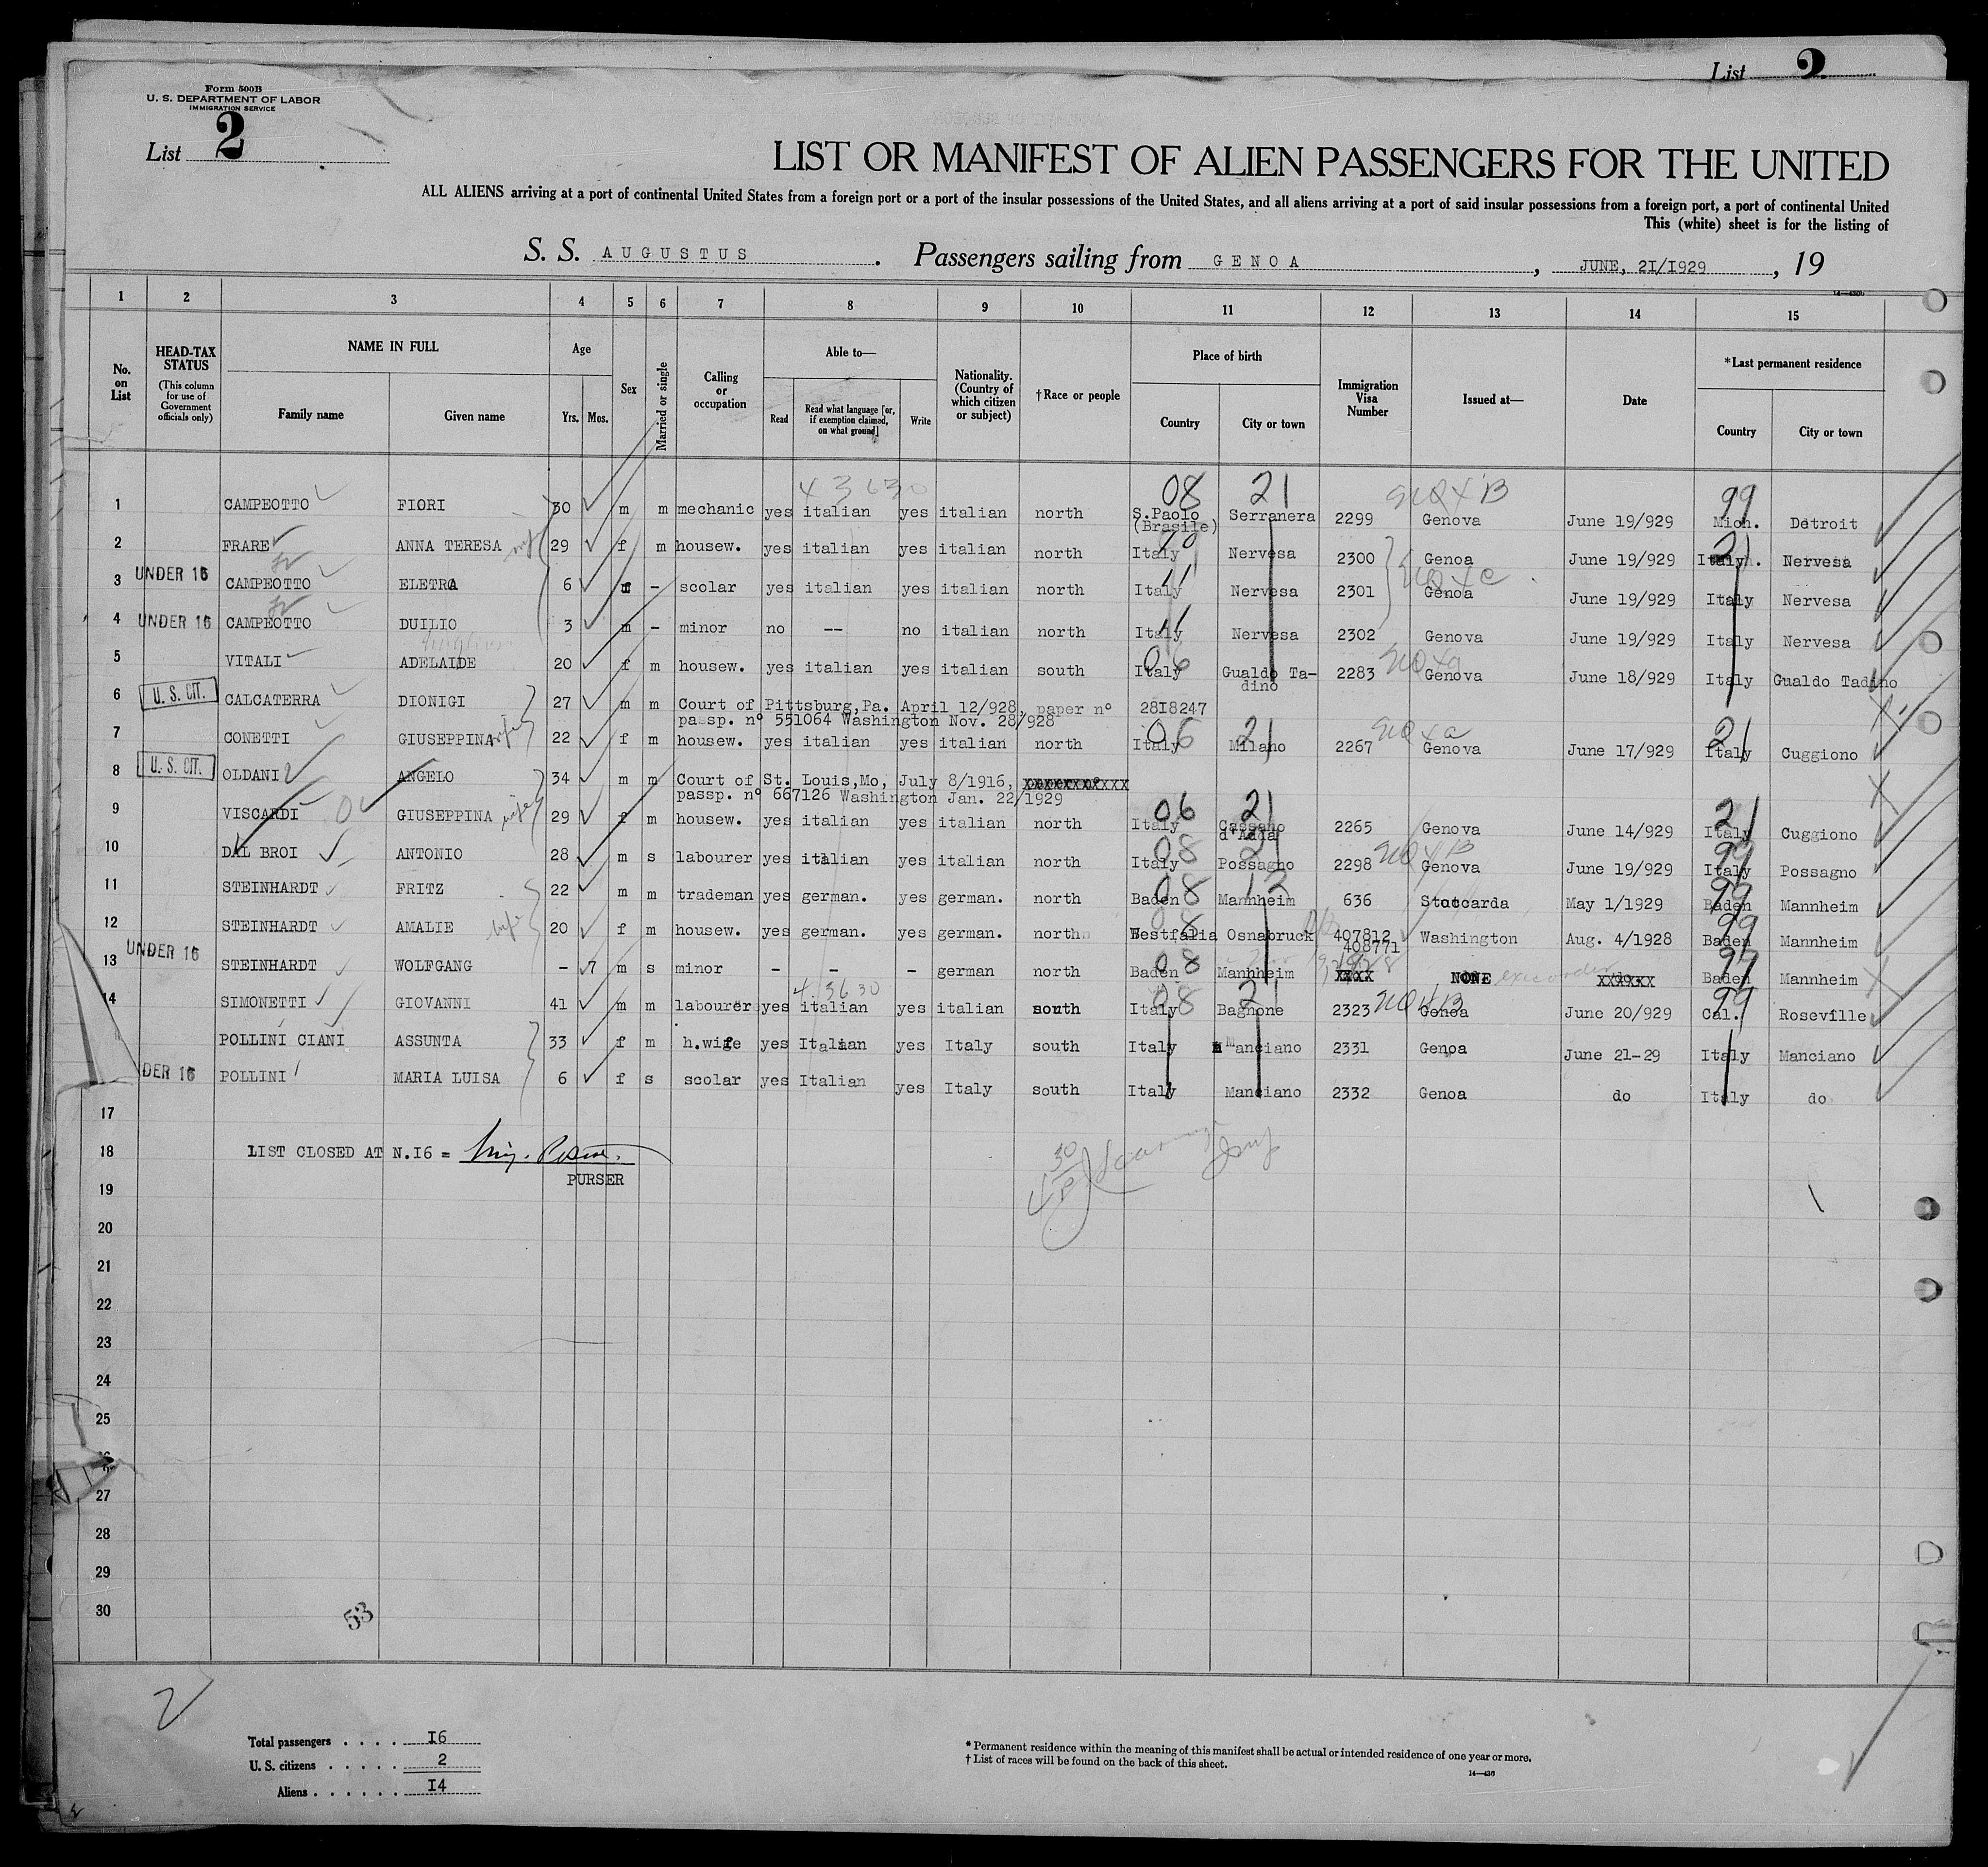 List 2
Form 500B
U. S. DEPARTMENT OF LABOR
IMMIGRATION SERVICE
List 2
LIST OR MANIFEST OF ALIEN PASSENGERS FOR THE UNITED
ALL ALIENS arriving at a port of continental United States from a foreign port or a port of the insular possessions of the United States, and all aliens arriving at a port of said insular possessions from a foreign port, a port of continental United
This (white) sheet is for the listing of
S. S. AUGUSTUS. Passengers sailing from GENOA, JUNE, 2I/I929, 19
1 2 3 4 5 6 7 8 9 10 11 12 13 14 15
No. on List
HEAD-TAX STATUS (This column for use of Government officials only)
NAME IN FULL
Family name Given name
Age
Yrs. Mos.
Sex
Married or single
Calling or occupation
Able to—
Read Read what language [or, if exemption claimed, on what ground] Write
Nationality. (Country of which citizen or subject)
†Race or people
Place of birth
Country City or town
Immigration Visa Number
Issued at—
Date
*Last permanent residence
Country City or town
43630 08 21 99
1 CAMPEOTTO FIORI 30 m m mechanic yes italian yes italian north S.Paolo (Brasile) Serranera 2299 Genova June 19/929 Mich. Detroit
2 FRARE ANNA TERESA 29 f m housew. yes italian yes italian north Italy Nervesa 2300 Genoa June 19/929 Italy Nervesa
3 UNDER 16 CAMPEOTTO ELETRA 6 f - scolar yes italian yes italian north Italy Nervesa 2301 Genoa June 19/929 Italy Nervesa
4 UNDER 16 CAMPEOTTO DUILIO 3 m - minor no -- no italian north Italy Nervesa 2302 Genova June 19/929 Italy Nervesa
5 VITALI ADELAIDE 20 f m housew. yes italian yes italian south Italy Gualdo Ta-dino 2283 Genova June 18/929 Italy Gualdo Tadino
6 U. S. CIT. CALCATERRA DIONIGI 27 m m Court of Pittsburg,Pa. April 12/928, paper nº 28I8247
passp. nº 551064 Washington Nov. 28/928
7 CONETTI GIUSEPPINA wife 22 f m housew. yes italian yes italian north Italy Milano 2267 Genova June 17/929 Italy Cuggiono
8 U. S. CIT. OLDANI ANGELO 34 m m Court of St. Louis,Mo, July 8/1916,
passp. nº 667126 Washington Jan. 22/1929
9 VISCARDI GIUSEPPINA wife 29 f m housew. yes italian yes italian north Italy Cassano d'Adda 2265 Genova June 14/929 Italy Cuggiono
10 DAL BROI ANTONIO 28 m s labourer yes italian yes italian north Italy Possagno 2298 Genova June 19/929 Italy Possagno
11 STEINHARDT FRITZ 22 m m trademan yes german. yes german. north Baden Mannheim 636 Stoccarda May 1/1929 Baden Mannheim
12 STEINHARDT AMALIE wife 20 f m housew. yes german. yes german. north Westfalia Osnabruck 407812 408771 Washington Aug. 4/1928 Baden Mannheim
UNDER 16
13 STEINHARDT WOLFGANG - 7 m s minor - - - german north Baden Mannheim XXXX NONE XXXXXX Baden Mannheim
4.3630
14 SIMONETTI GIOVANNI 41 m m labourer yes italian yes italian south Italy Bagnone 2323 Genoa June 20/929 Cal. Roseville
POLLINI CIANI ASSUNTA 33 f m h.wife yes Italian yes Italy south Italy Manciano 2331 Genoa June 21-29 Italy Manciano
DER 16 POLLINI MARIA LUISA 6 f s scolar yes Italian yes Italy south Italy Manciano 2332 Genoa do Italy do
17
18 LIST CLOSED AT N.I6 =
PURSER
19
20
21
22
23
24
25
27
28
29
30
53
2
Total passengers . . . . I6
U. S. citizens . . . . . 2
Aliens . . . . . . I4
* Permanent residence within the meaning of this manifest shall be actual or intended residence of one year or more.
† List of races will be found on the back of this sheet.
14—430